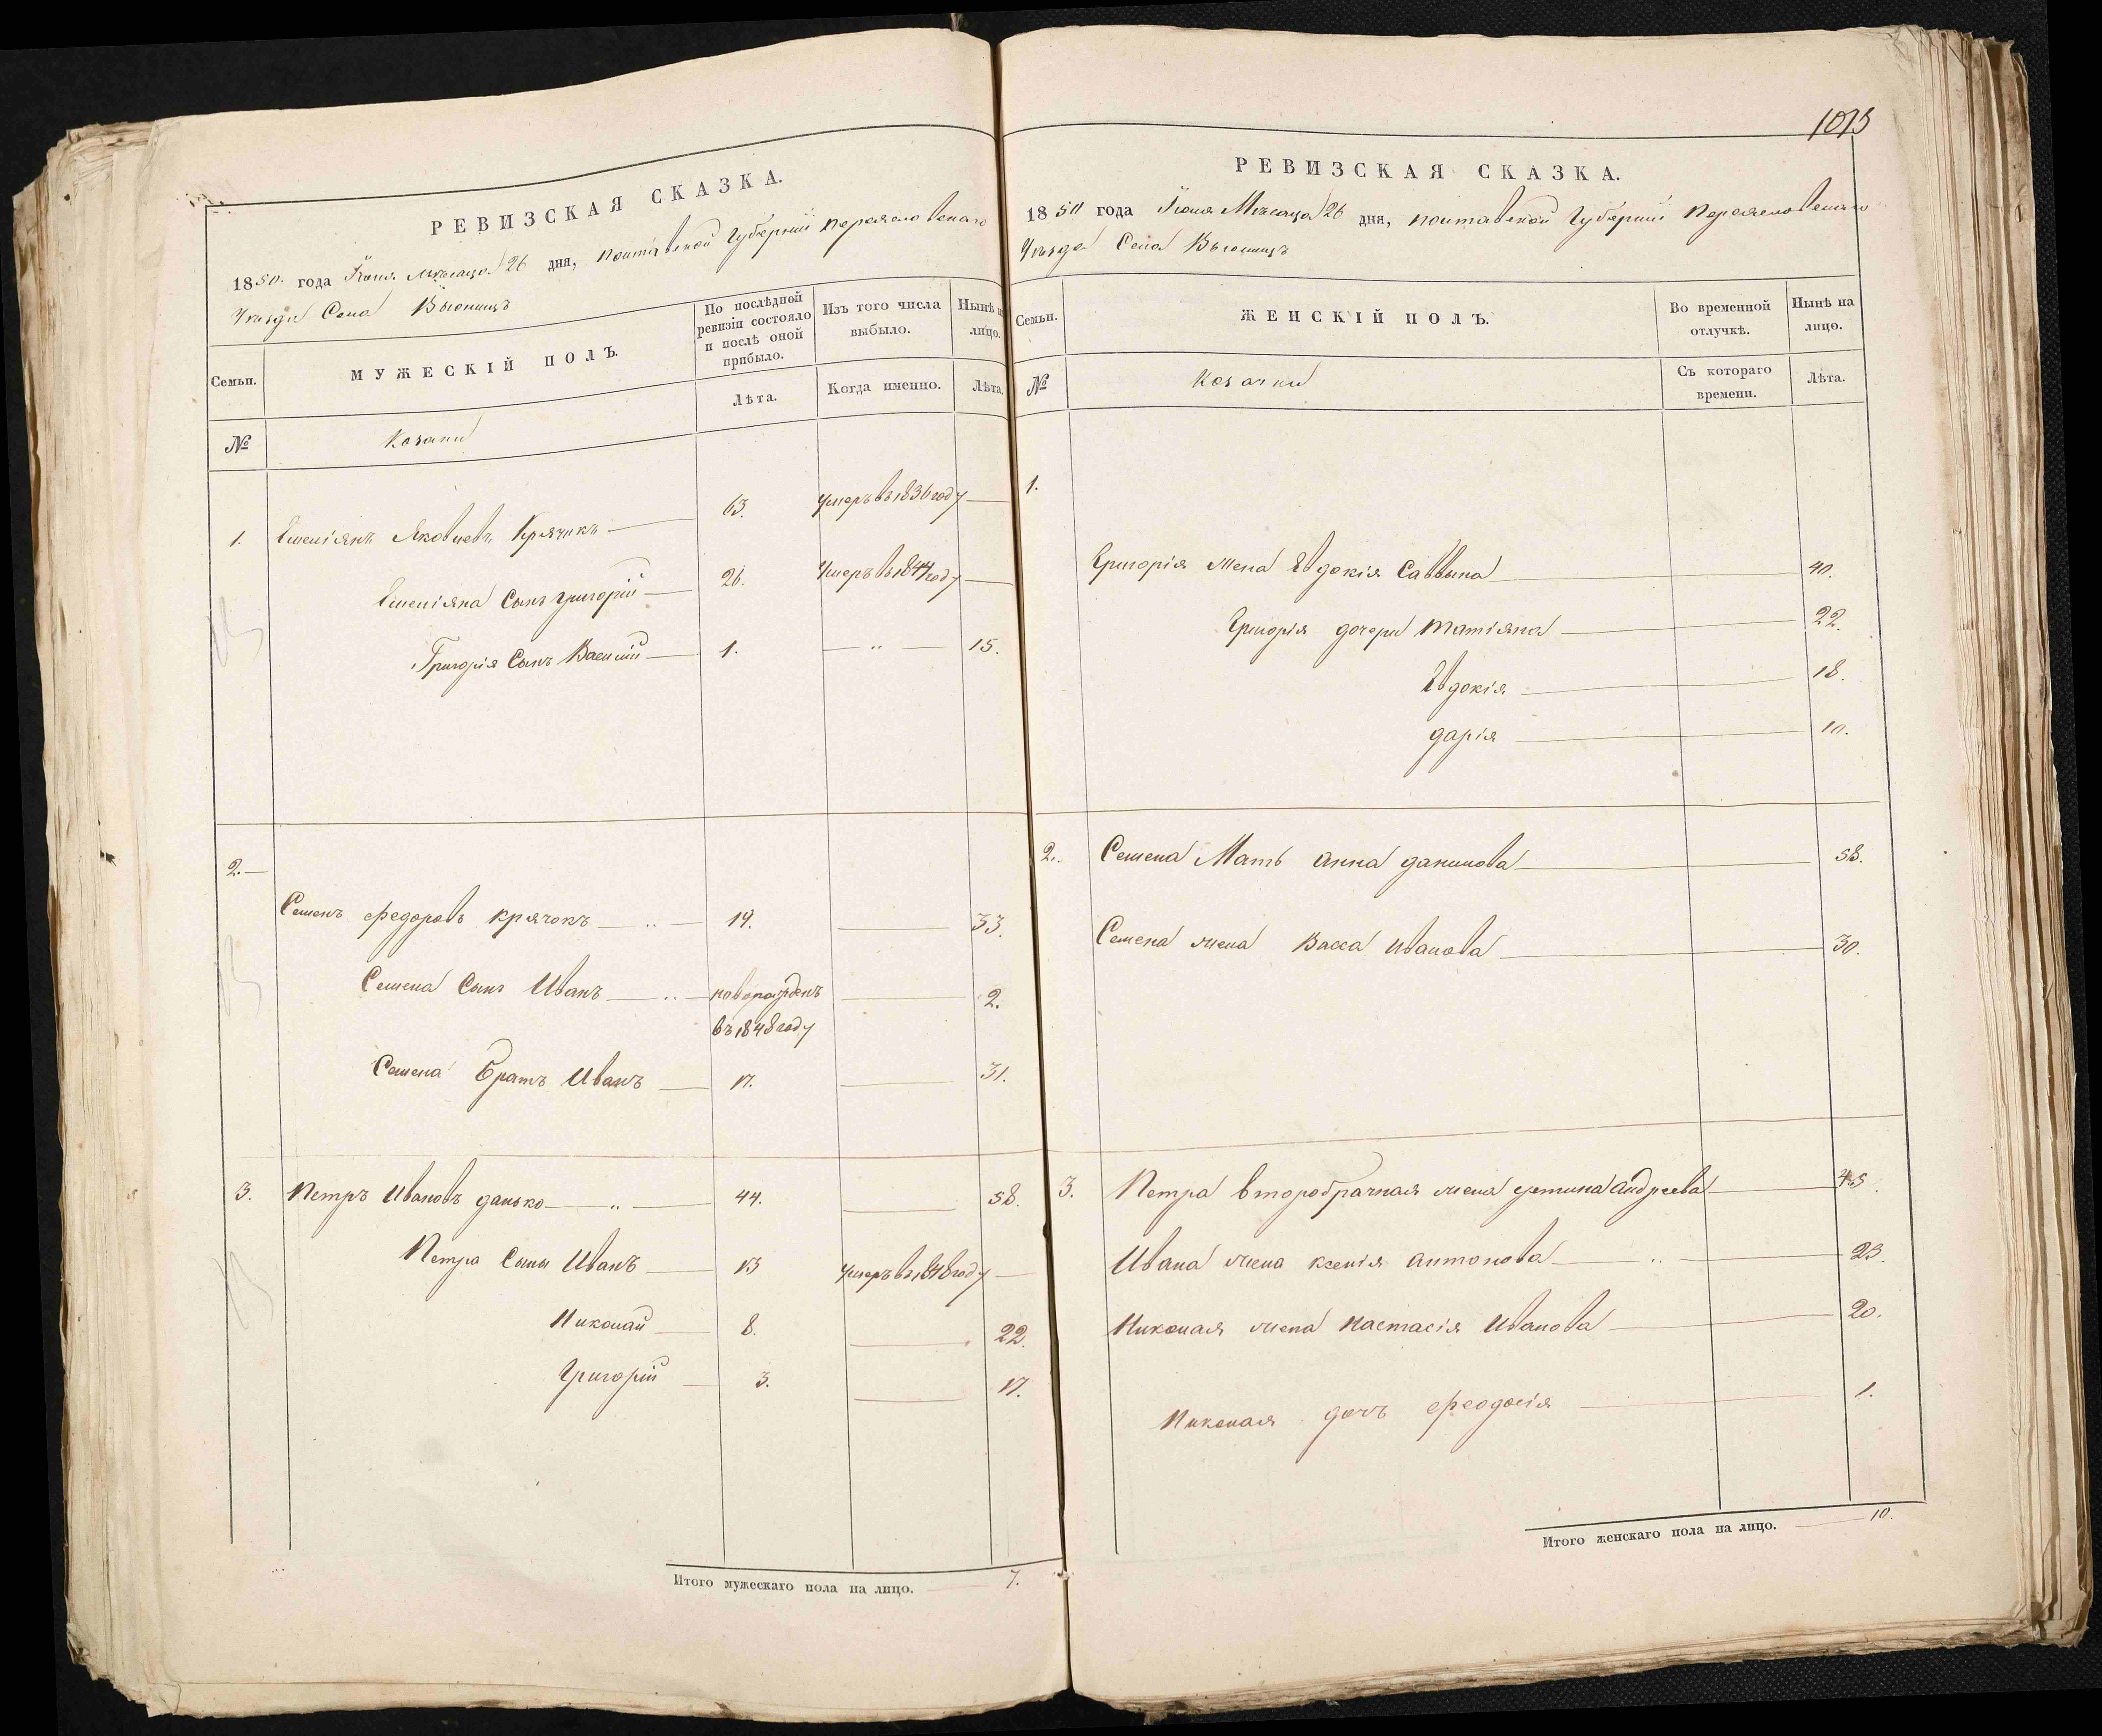 РЕВИЗСКАЯ СКАЗКА.
1850 года Іюня мѣсяца 26 дня, полтавской Губерніи переяславскаго
Уѣзда Села Вьюнищъ
Семьи.
МУЖЕСКІЙ ПОЛЪ.
По послѣдней ревизіи состояло и послѣ оной прибыло.
Изъ того числа выбыло.
Нынѣ на лицо.
№
Козаки
Лѣта.
Когда именно.
Лѣта.
1. Емеліянъ Яковлевъ Крячокъ — 63. Умеръ въ 1836 году —
Емеліяна Сынъ Григорій — 26. Умеръ въ 1844 году —
Григорія Сынъ Василій — 1. — „ — 15.
2. —
Семенъ федоровъ крячокъ — „ — 19. — 33.
Семена Сынъ Иванъ — „ — новорожденъ — 2.
въ 1848 году
Семена Братъ Иванъ — 17. — 31.
3. Петръ Ивановъ данько — „ — 44. — 58.
Петра Сыны Иванъ — 13 Умеръ въ 1848 году —
Николай — 8. — 22.
Григорій — 3. — 17.
Итого мужескаго пола на лицо. — 7.
1075
РЕВИЗСКАЯ СКАЗКА.
1850 года Іюня Мѣсяца 26 дня, полтавской Губерніи Переяславскаго
Уѣзда Села Вьюнищъ
Семьи.
ЖЕНСКІЙ ПОЛЪ.
Во временной отлучкѣ.
Нынѣ на лицо.
№
Козачки
Съ котораго времени.
Лѣта.
1.
Григорія жена Евдокія Саввына — 40.
Григорія дочери татіяна — 22.
Евдокія — 18.
дарія — 10.
2. Семена Мать анна данилова — 58.
Семена жена Васса иванова — 30.
3. Петра второбрачная жена устина андреева — 45.
Ивана жена ксенія антонова — „ — 23.
Николая жена настасія Иванова — 20.
Николая дочь феодосія — 1.
Итого женскаго пола на лицо. — 10.